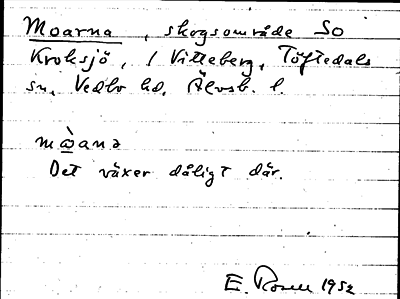 Moarna, skogsområde SO
Kroksjö, / Vitteberg, Töftedals
sn, Vedbo hd, Älvsb. l.
mòana
Det växer dåligt där.
E. Rosell 1952